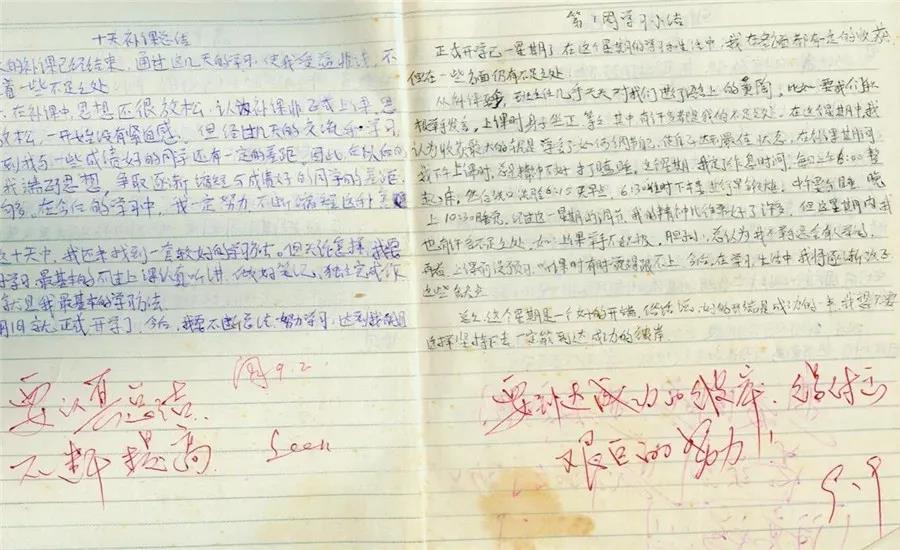 十天补课总结
的补课已经结束，通过这几天的学习，使我受益非浅，不
着一些不足之处
在补课中，思想还很放松，认为补课非正式上课，思
放松，一开始没有紧迫感，但经过几天的交流和学习，
到我与一些成绩好的同学还有一定的差距，因此，在以后的
我端正思想，争取逐渐缩短与成绩好的同学的差距，
在今后的学习中，我一定努力不断缩短这种差距
这十天中，我还未找到一套较好的学习方法。但无论怎样，我要
学习最基本的不过上课认真听讲，做好笔记，独立完成作
就是我最基本的学习方法
正式开学了，今后，我要不断总结，努力学习，达到我的目
要认真总结
不断提高
9.2
Seen
第1周学习小结
正式开学已一星期了，在这个星期的学习和生活中，我在各方面都有一定的收获，
但在一些方面仍有不足之处
从开课，班主任几乎天天对我们进行思想上的熏陶，比如要我们积
极举手发言，上课时身子坐正等等，其中有许多都是我的不足之处，在这个星期中，我
认为收获最大的就是学会了如何调节自己，使自己达到最佳状态，在补课其间，
我下午上课时，总是精神不好，打瞌睡，这个星期，我定作息时间，每日早上6:00整
起床，然后洗漱6:15去早点，6:30准时下去进行早锻炼，中午要午睡，晚
上10:30睡觉，经过这一星期的调节，我的精神比往常好了许多，但这星期内我
也有许多不足之处，如：上课举手不积极，胆小，总认为我不举总会有人举的，
再者，上课前没预习，听课时有时觉得跟不上，今后，在学习、生活中我将逐渐改正
这些缺点
总之，这个星期是一个好的开端，俗话说，好的开端是成功的一半，我想只要
这样坚持下去一定能到达成功的彼岸
要到达成功的彼岸，须付出
艰巨的努力！
9.9